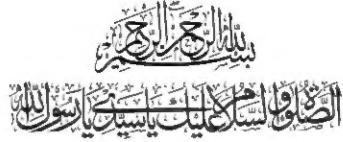 بسم الله الرحمن الرحيم
الصلوة والسلام عليك يا سيدي يا رسول الله